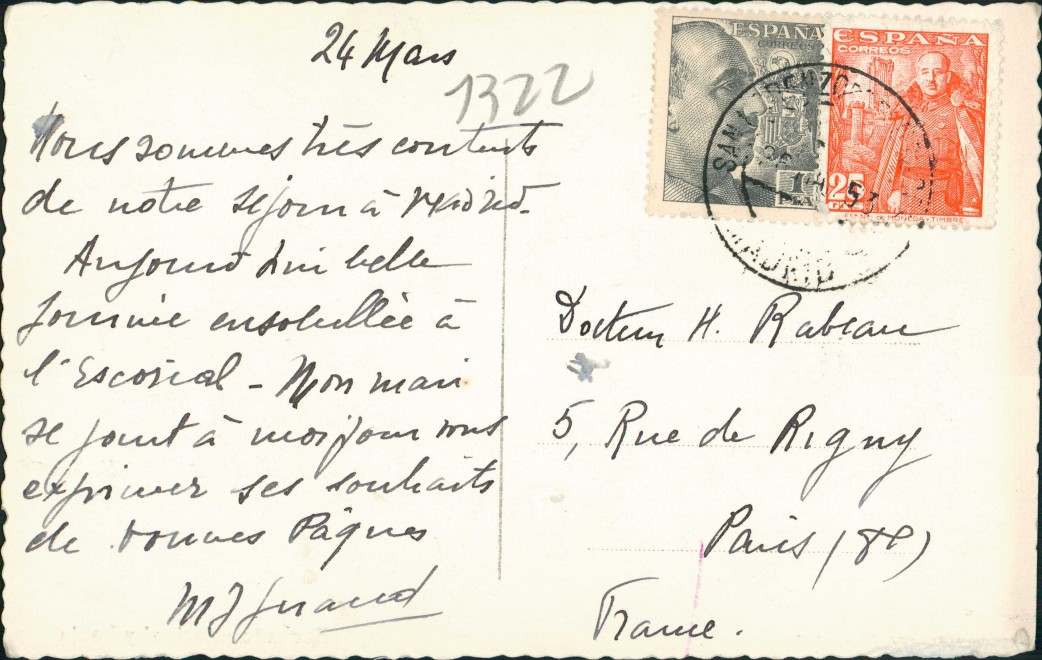 24 Mars
1322
Nous sommes très contents
de notre séjour à Madrid.
Aujourd'hui belle
journée ensoleillée à
l'Escorial - Mon mari
se joint à moi pour vous
exprimer ses souhaits
de bonnes Pâques
ESPAÑA
CORREOS
1
PTA
ESPAÑA
CORREOS
25
MONEDA Y TIMBRE
SAN LORENZO
MADRID
Docteur H. Rabeau
5, Rue de Rigny
Paris (8e)
France.